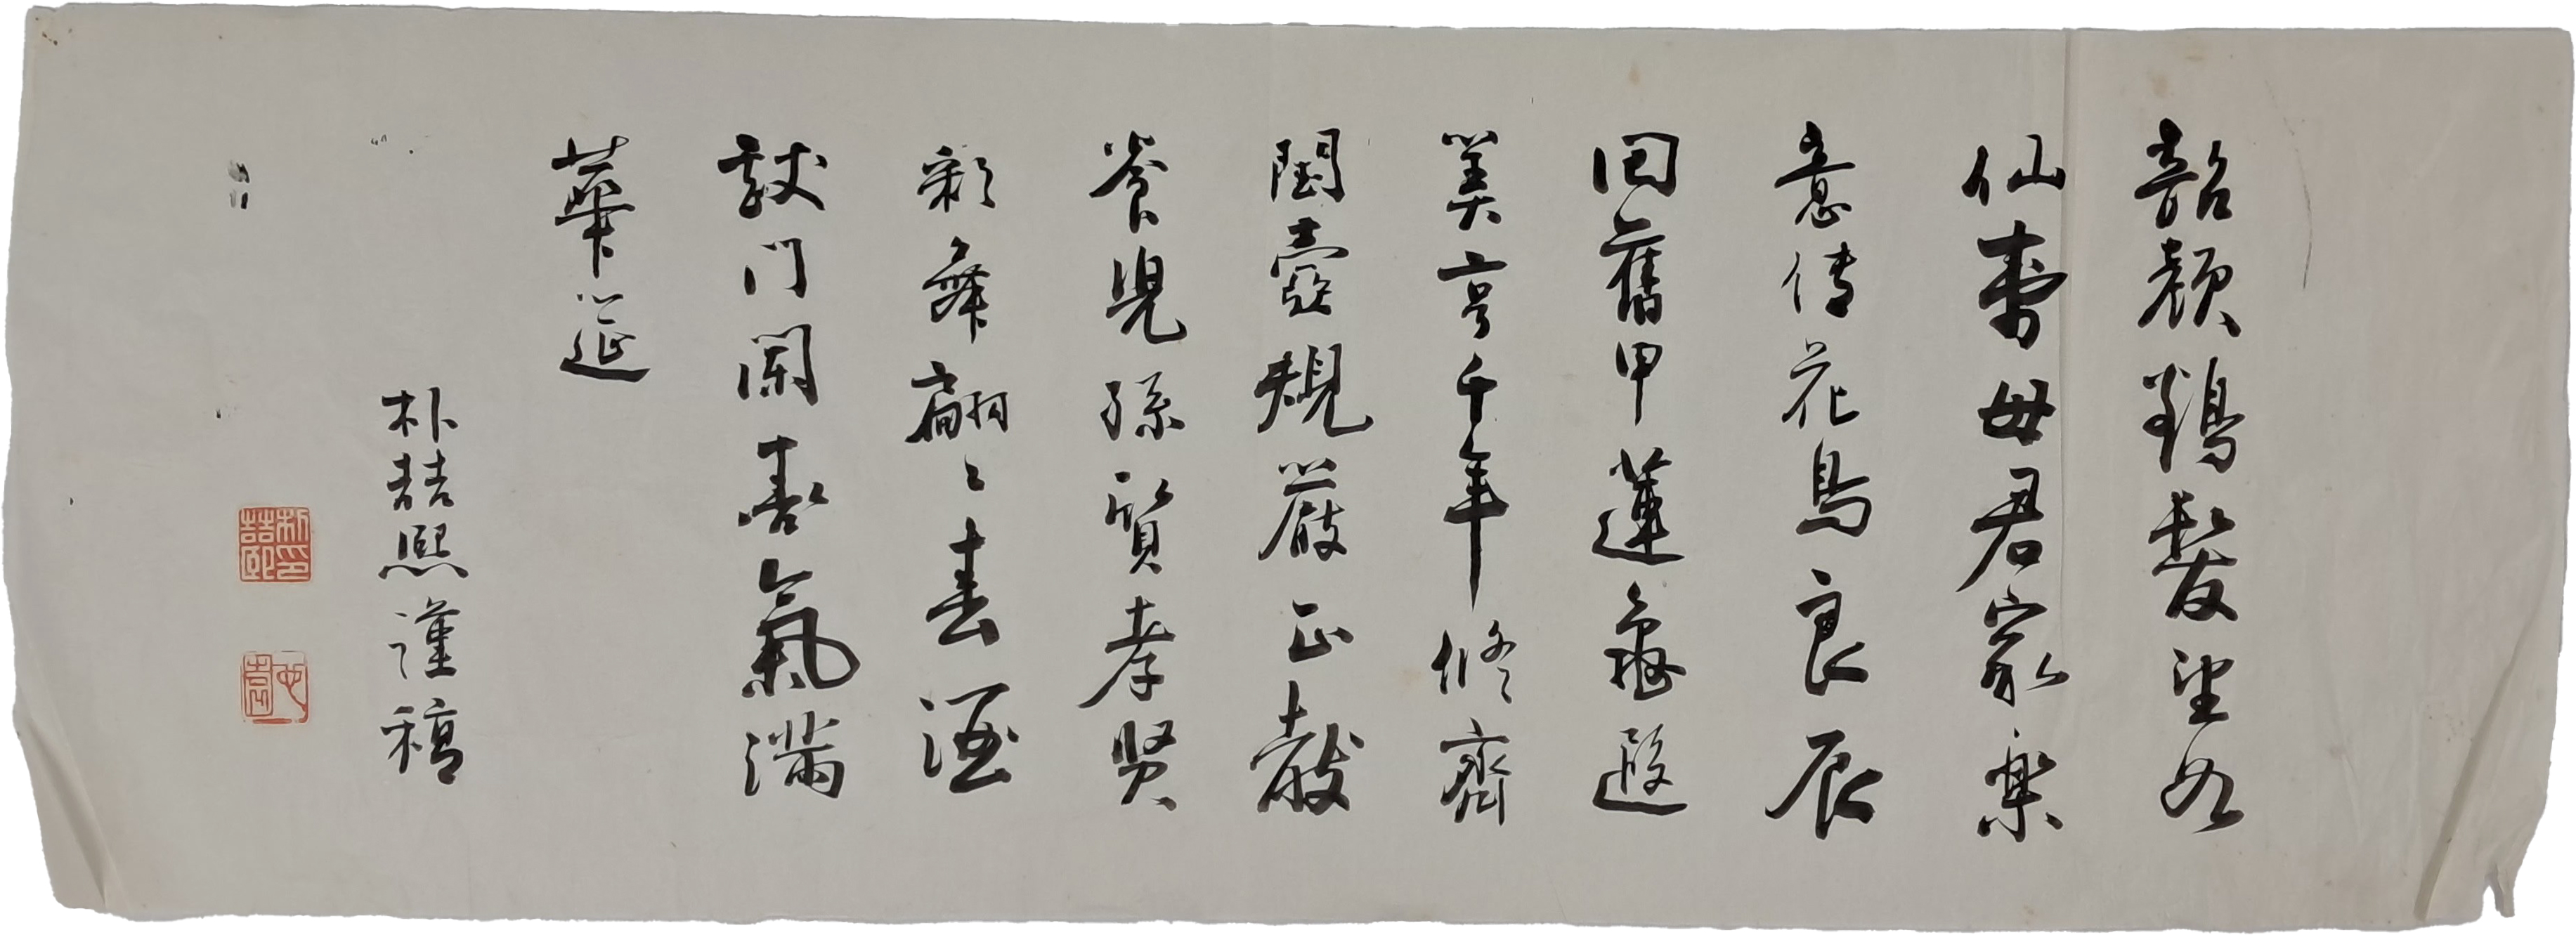 韶顔鶴髮望如
仙壽母君家樂
意傳花鳥良辰
回舊甲蓮龜遐
算享千年修齊
閫壼規嚴正教
養兒孫質孝賢
彩舞翩〻春酒
献门闌喜氣滿
華筵
朴喆熙謹稿